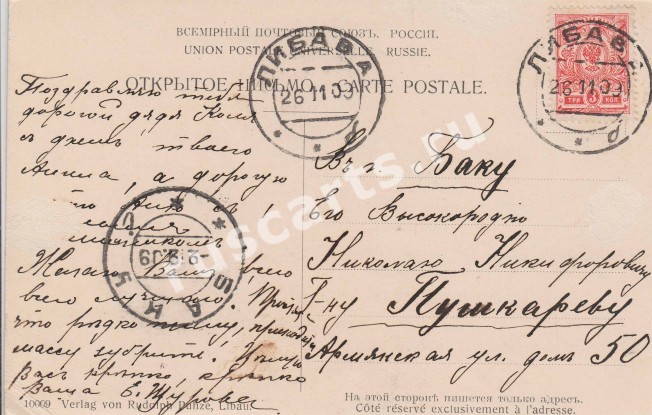 ВСЕМІРНЫЙ ПОЧТОВЫЙ СОЮЗЪ. РОССІЯ.
UNION POSTALE UNIVERSELLE. RUSSIE.
ОТКРЫТОЕ ПИСЬМО. — CARTE POSTALE.
ЛИБАВА
26 11 09
ЛИБАВА
26 11 09
ТРИ 3 КОП
Поздравляю тебя
дорогой дядя Коля
с днемъ твоего
Ангела, а дорогую
Желаю Вамъ всего
всего лучшаго.
что рядко пишу,
массу зубрить. Цѣлую
Васъ крѣпко, крѣпко
Ваша Е.
Въ г. Баку
Его Высокородію
Николаю Никифоровичу
Г-ну Пушкареву
Армянская ул. домъ 50
БАКУ
ruscarts.ru
10009 Verlag von Rudolph Punze, Libau.
На этой сторонѣ пишется только адресъ.
Côté réservé exclusivement à l'adresse.